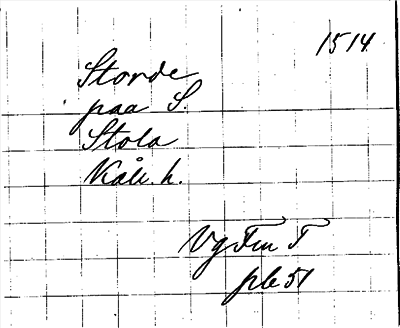 1514
Storde
paa S.
Stola
Kåll. h.
Vg Fm T
pb 51